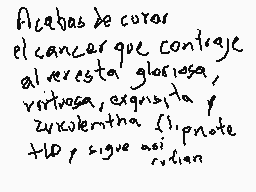 Acabas de curar
el cancer que contraje
al ver esta gloriosa,
virtuosa, exquisita y
zukulemtha flipnote
tio, sigue asi